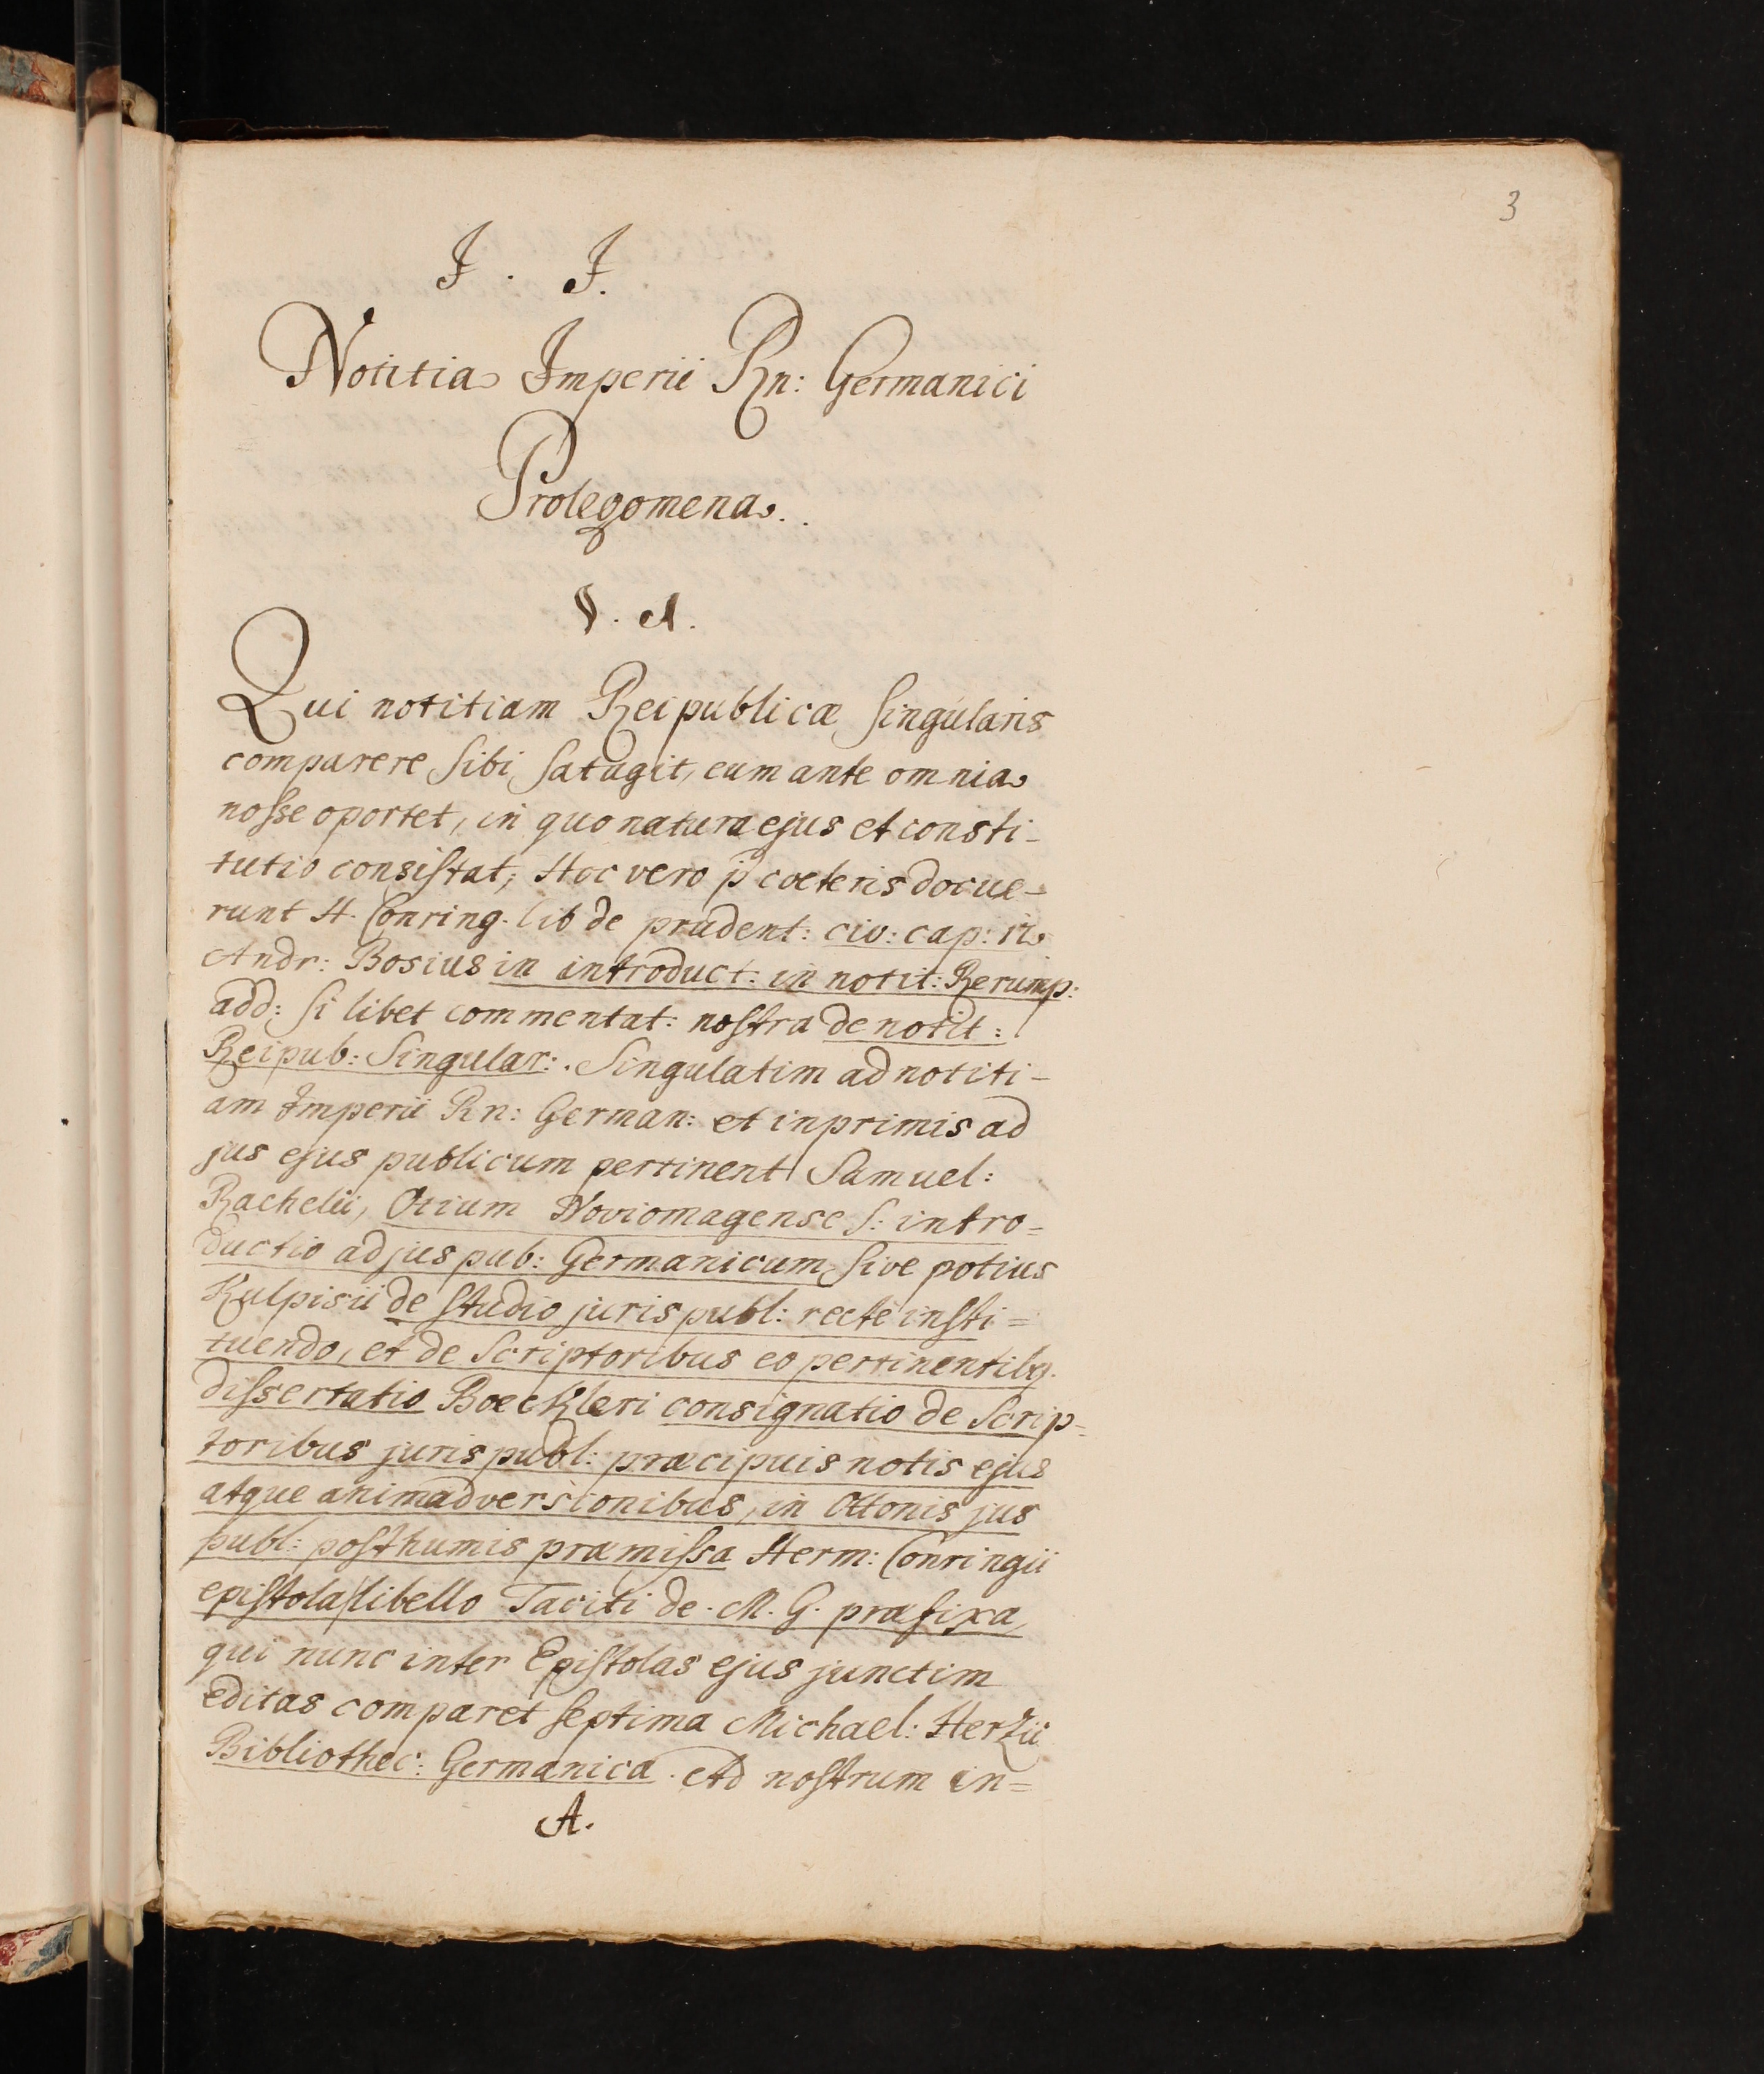 3
J. J.
Notitia Imperii Rn: Germanici
Prolegomena.
§. 1.
Qui notitiam Reipublicæ singularis
comparere sibi satagit, eum ante omnia
nosse oportet, in quo natura ejus et consti-
tutio consistat; Hoc vero p̃ cœteris docue-
runt H. Conring. lib de prudent: civ: cap:
Andr: Bosius in introduct: in notit: Rerump:
add: si libet commentat: nostra de notit:
Reipub: Singular:. Singulatim ad notiti-
am Imperii Rn: German: et inprimis ad
jus ejus publicum pertinent Samuel:
Rachelii, Otium Noviomagense s: intro=
ductio ad jus pub: Germanicum, sive potius
Kulpisii de studio juris publ: recte insti=
tuendo, et de Scriptoribus eo pertinentibq.
dissertatio Boeckleri consignatio de Scrip=
toribus juris publ: præcipuis notis ejus
atque animadversionibus, in Ottonis jus
publ: posthumis præmissa Herm: Conringii
epistola libello Taciti de. M. G. præfixa,
qui nunc inter Epistolas ejus junctim
editas comparet septima Michael: Hertzii
Bibliothec: Germanica. Ad nostrum in=
A.